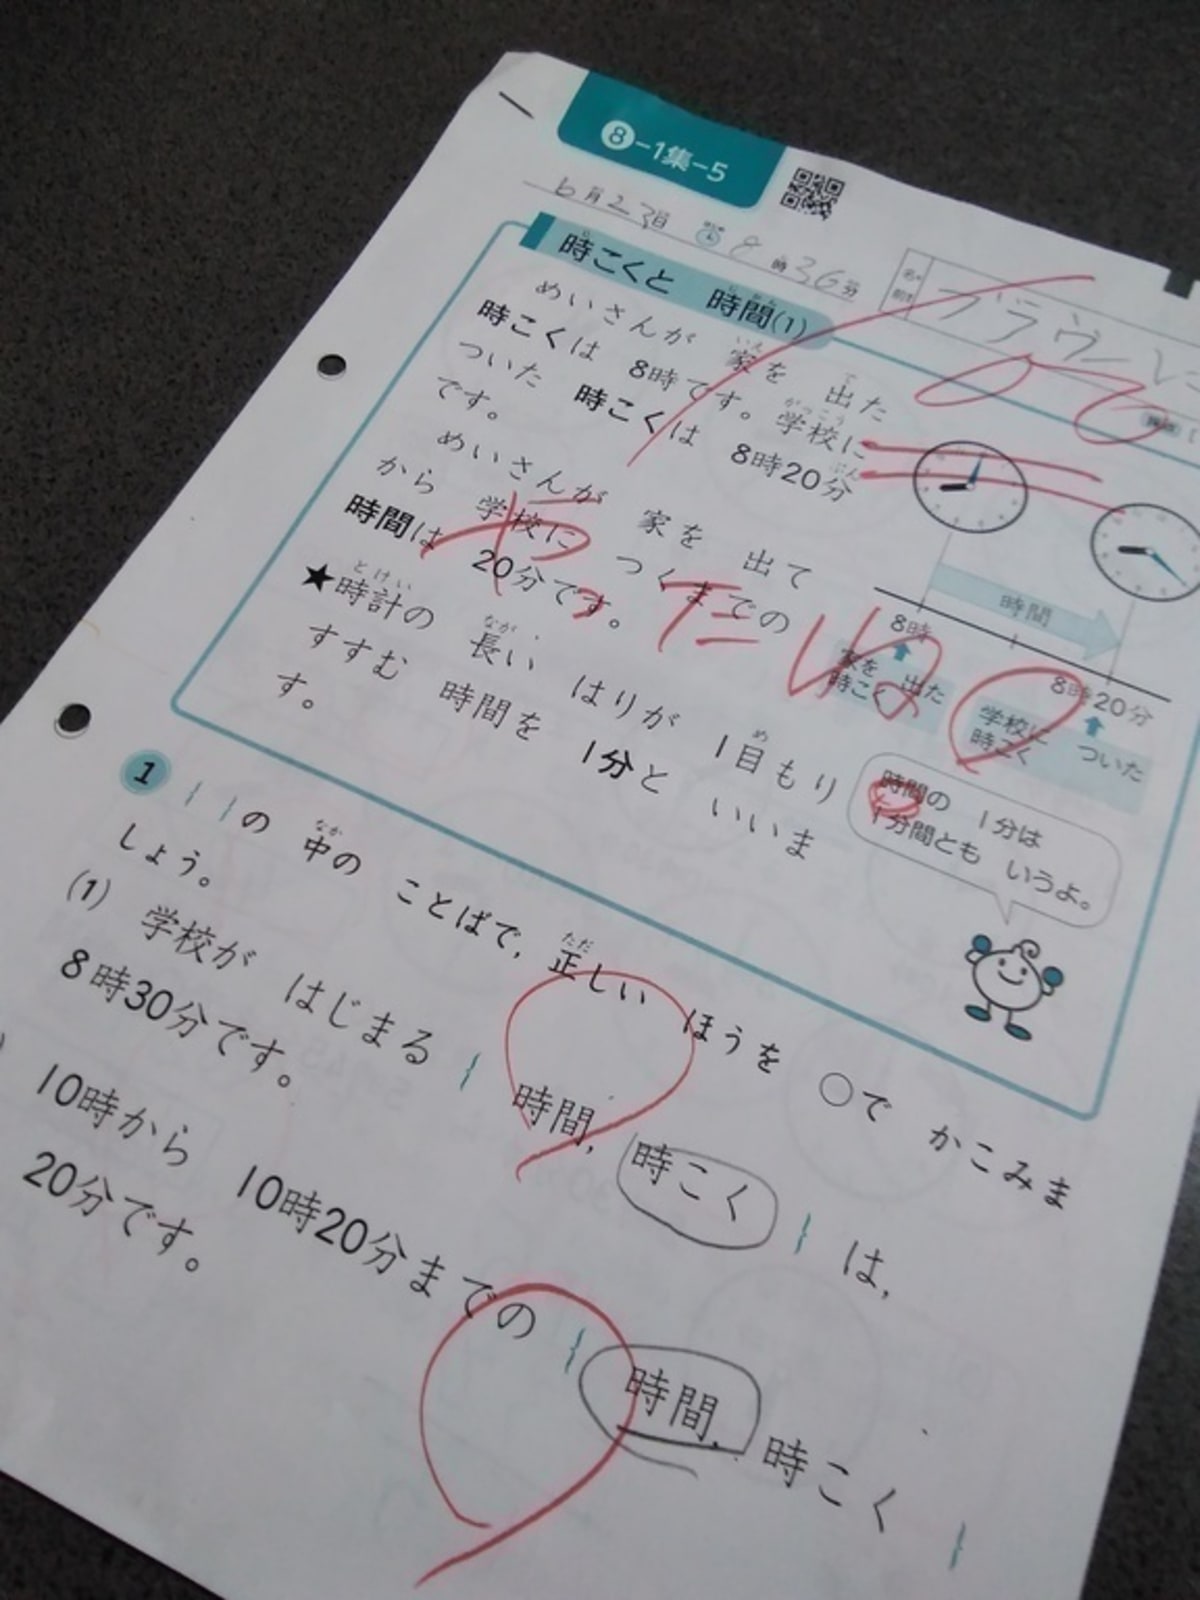 8-1集-5
6月23日 8時36分
名前 ブラウン
時こくと 時間(1)
めいさんが 家を 出た
時こくは 8時です。学校に
ついた 時こくは 8時20分
です。
めいさんが 家を 出て
から 学校に つくまでの
時間は 20分です。
★時計の 長い はりが 1目もり
すすむ 時間を 1分と いいま
す。
時間
8時
8時20分
家を 出た
時こく
学校に ついた
時こく
時間の 1分は
1分間とも いうよ。
やったね!
1 { }の 中の ことばで, 正しい ほうを ○で かこみま
しょう。
(1) 学校が はじまる { 時間, 時こく } は,
8時30分です。
10時から 10時20分までの { 時間, 時こく }
20分です。